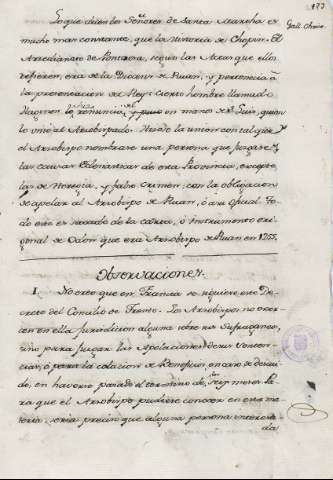 173
Gall. Christ.
Lo que dicen los Señores de Santa Marthe es
mucho mas constante, que la historia de Chopin. El
Arcedianato de Pontoise, segun las Actas que ellos
refieren, era de la Diocesis de Ruan, y pertenecia á
la presentacion del Rey: cierto hombre llamado
en manos de Sn. Luis, quien
lo unió al Arzobispado. Añade la union con tal que
el Arzobispo nombrare una persona que juzgase
las causas Eclesiasticas de esta Provincia, excepto
las de Heregia, y falso Crimen, con la obligacion
de apelar al Arzobispo de Ruan, ó a su Oficial. To-
do esto es sacado de la carta, ó instrumento ori-
ginal de Odon que era Arzobispo de Ruan en 1255.
Observaciones.
1. No creo que en Francia se siguiese este De-
creto del Concilio de Trento. Los Arzobispos no exer-
cen en ella jurisdicion alguna sobre sus Sufraganeos,
sino para juzgar las Apelaciones de sus Senten-
cias, ó para la colacion de Beneficios, en caso de descui-
do, en haviendo pasado el termino de seis meses. Pa-
ra que el Arzobispo pudiese conocer en esta ma-
teria, seria preciso que alguna persona interesa-
da